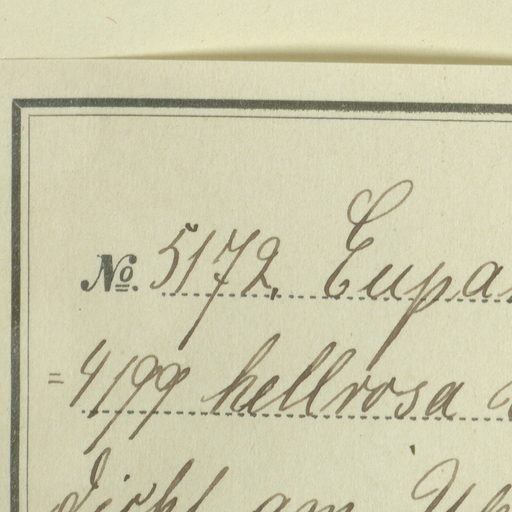 No. 5172. Eupa
= 4199 hellrosa
dicht am